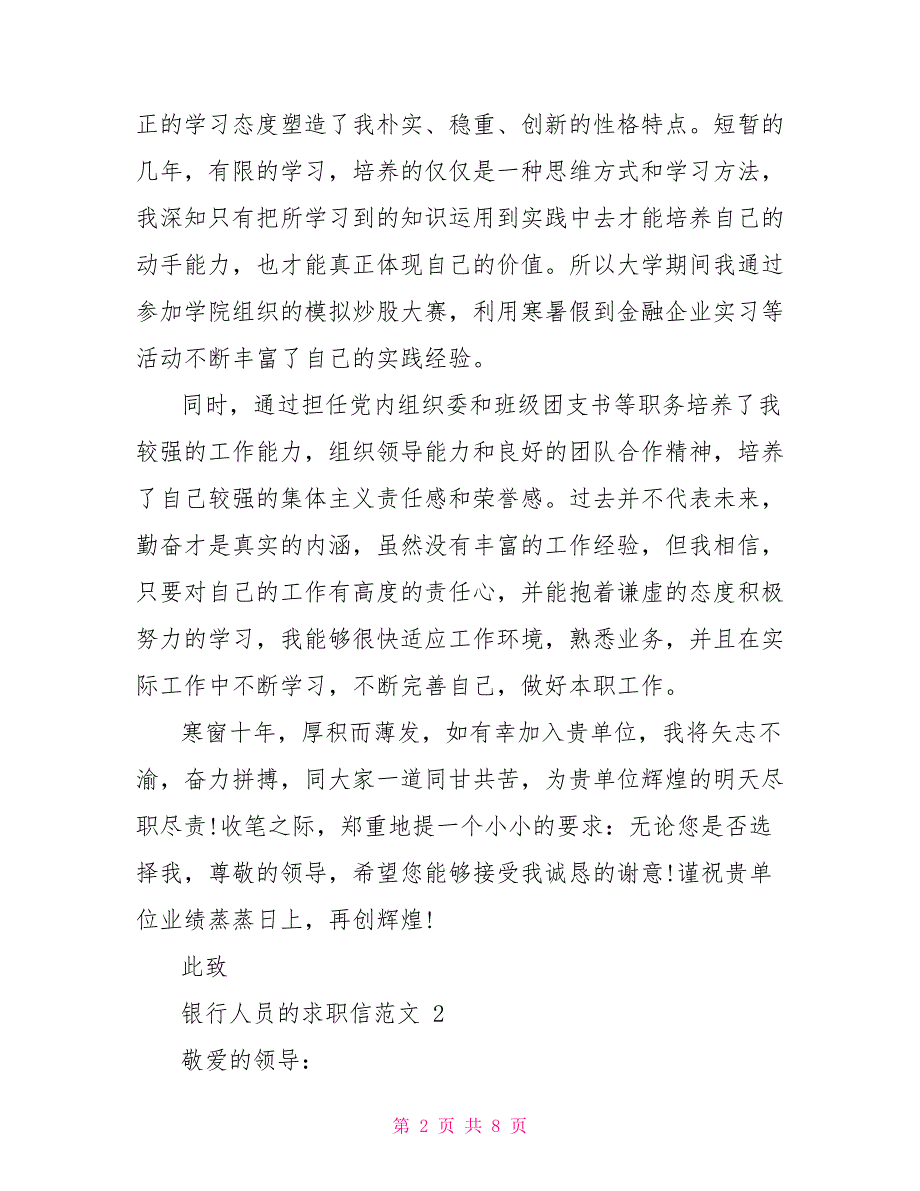 正的学习态度塑造了我朴实、稳重、创新的性格特点。短暂的
几年，有限的学习，培养的仅仅是一种思维方式和学习方法，
我深知只有把所学习到的知识运用到实践中去才能培养自己的
动手能力，也才能真正体现自己的价值。所以大学期间我通过
参加学院组织的模拟炒股大赛，利用寒暑假到金融企业实习等
活动不断丰富了自己的实践经验。
同时，通过担任党内组织委和班级团支书等职务培养了我
较强的工作能力，组织领导能力和良好的团队合作精神，培养
了自己较强的集体主义责任感和荣誉感。过去并不代表未来，
勤奋才是真实的内涵，虽然没有丰富的工作经验，但我相信，
只要对自己的工作有高度的责任心，并能抱着谦虚的态度积极
努力的学习，我能够很快适应工作环境，熟悉业务，并且在实
际工作中不断学习，不断完善自己，做好本职工作。
寒窗十年，厚积而薄发，如有幸加入贵单位，我将矢志不
渝，奋力拼搏，同大家一道同甘共苦，为贵单位辉煌的明天尽
职尽责!收笔之际，郑重地提一个小小的要求：无论您是否选
择我，尊敬的领导，希望您能够接受我诚恳的谢意!谨祝贵单
位业绩蒸蒸日上，再创辉煌!
此致
银行人员的求职信范文 2
敬爱的领导：
第 2 页 共 8 页